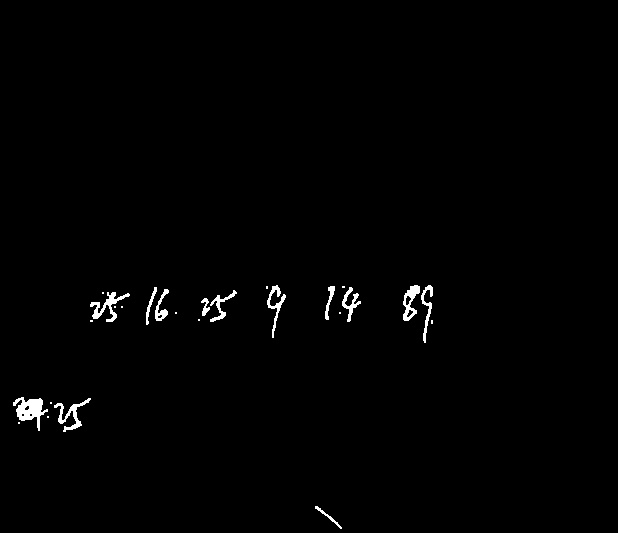 25 16 25 9 14 89
25